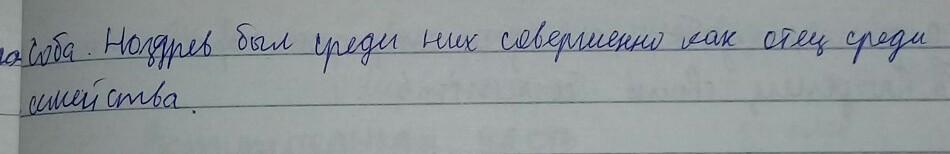 соба. Ноздрев был среди них совершенно как отец среди
семейства.